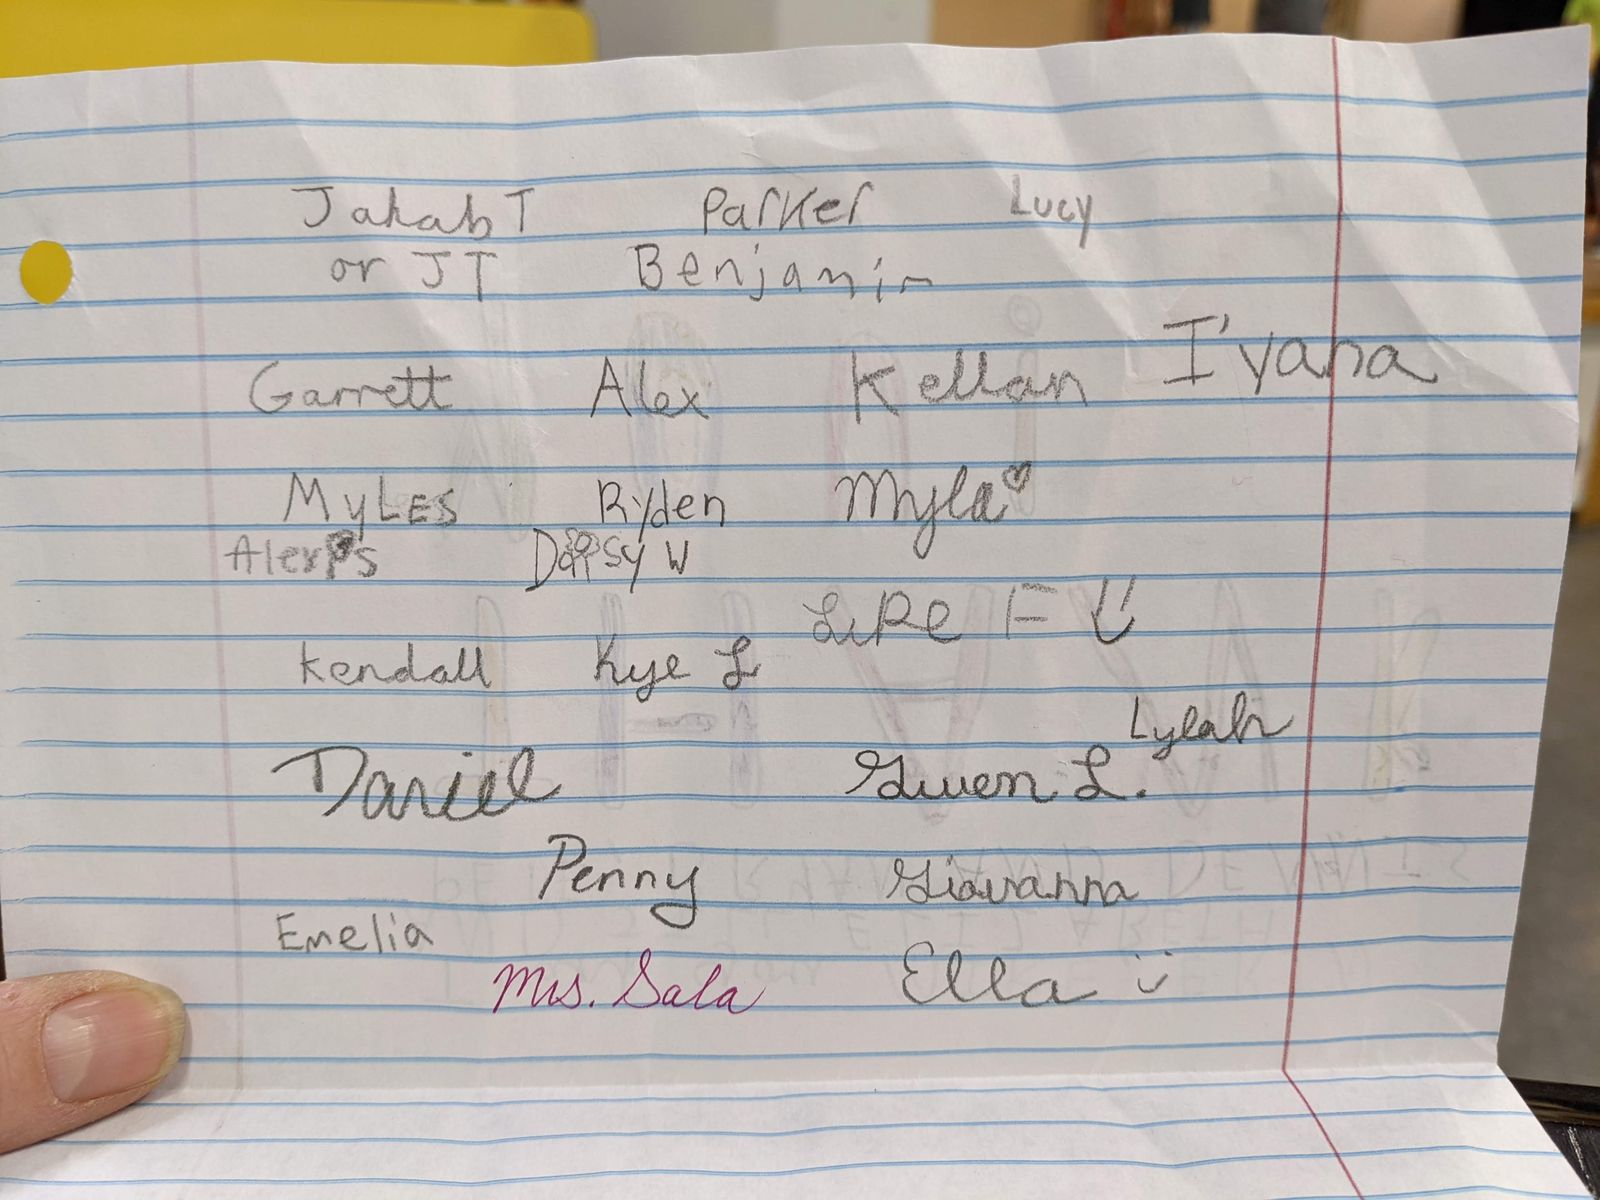 Jakab T Parker Lucy
or JT Benjamin
I'yana
Garrett Alex Kellan
MyLES Ryden Myla♡
Alexis Daisy W
F
Kendall Kye L
Lylah
Daniel Gwen L.
Penny Giovanna
Emelia
Mrs. Sala Ella